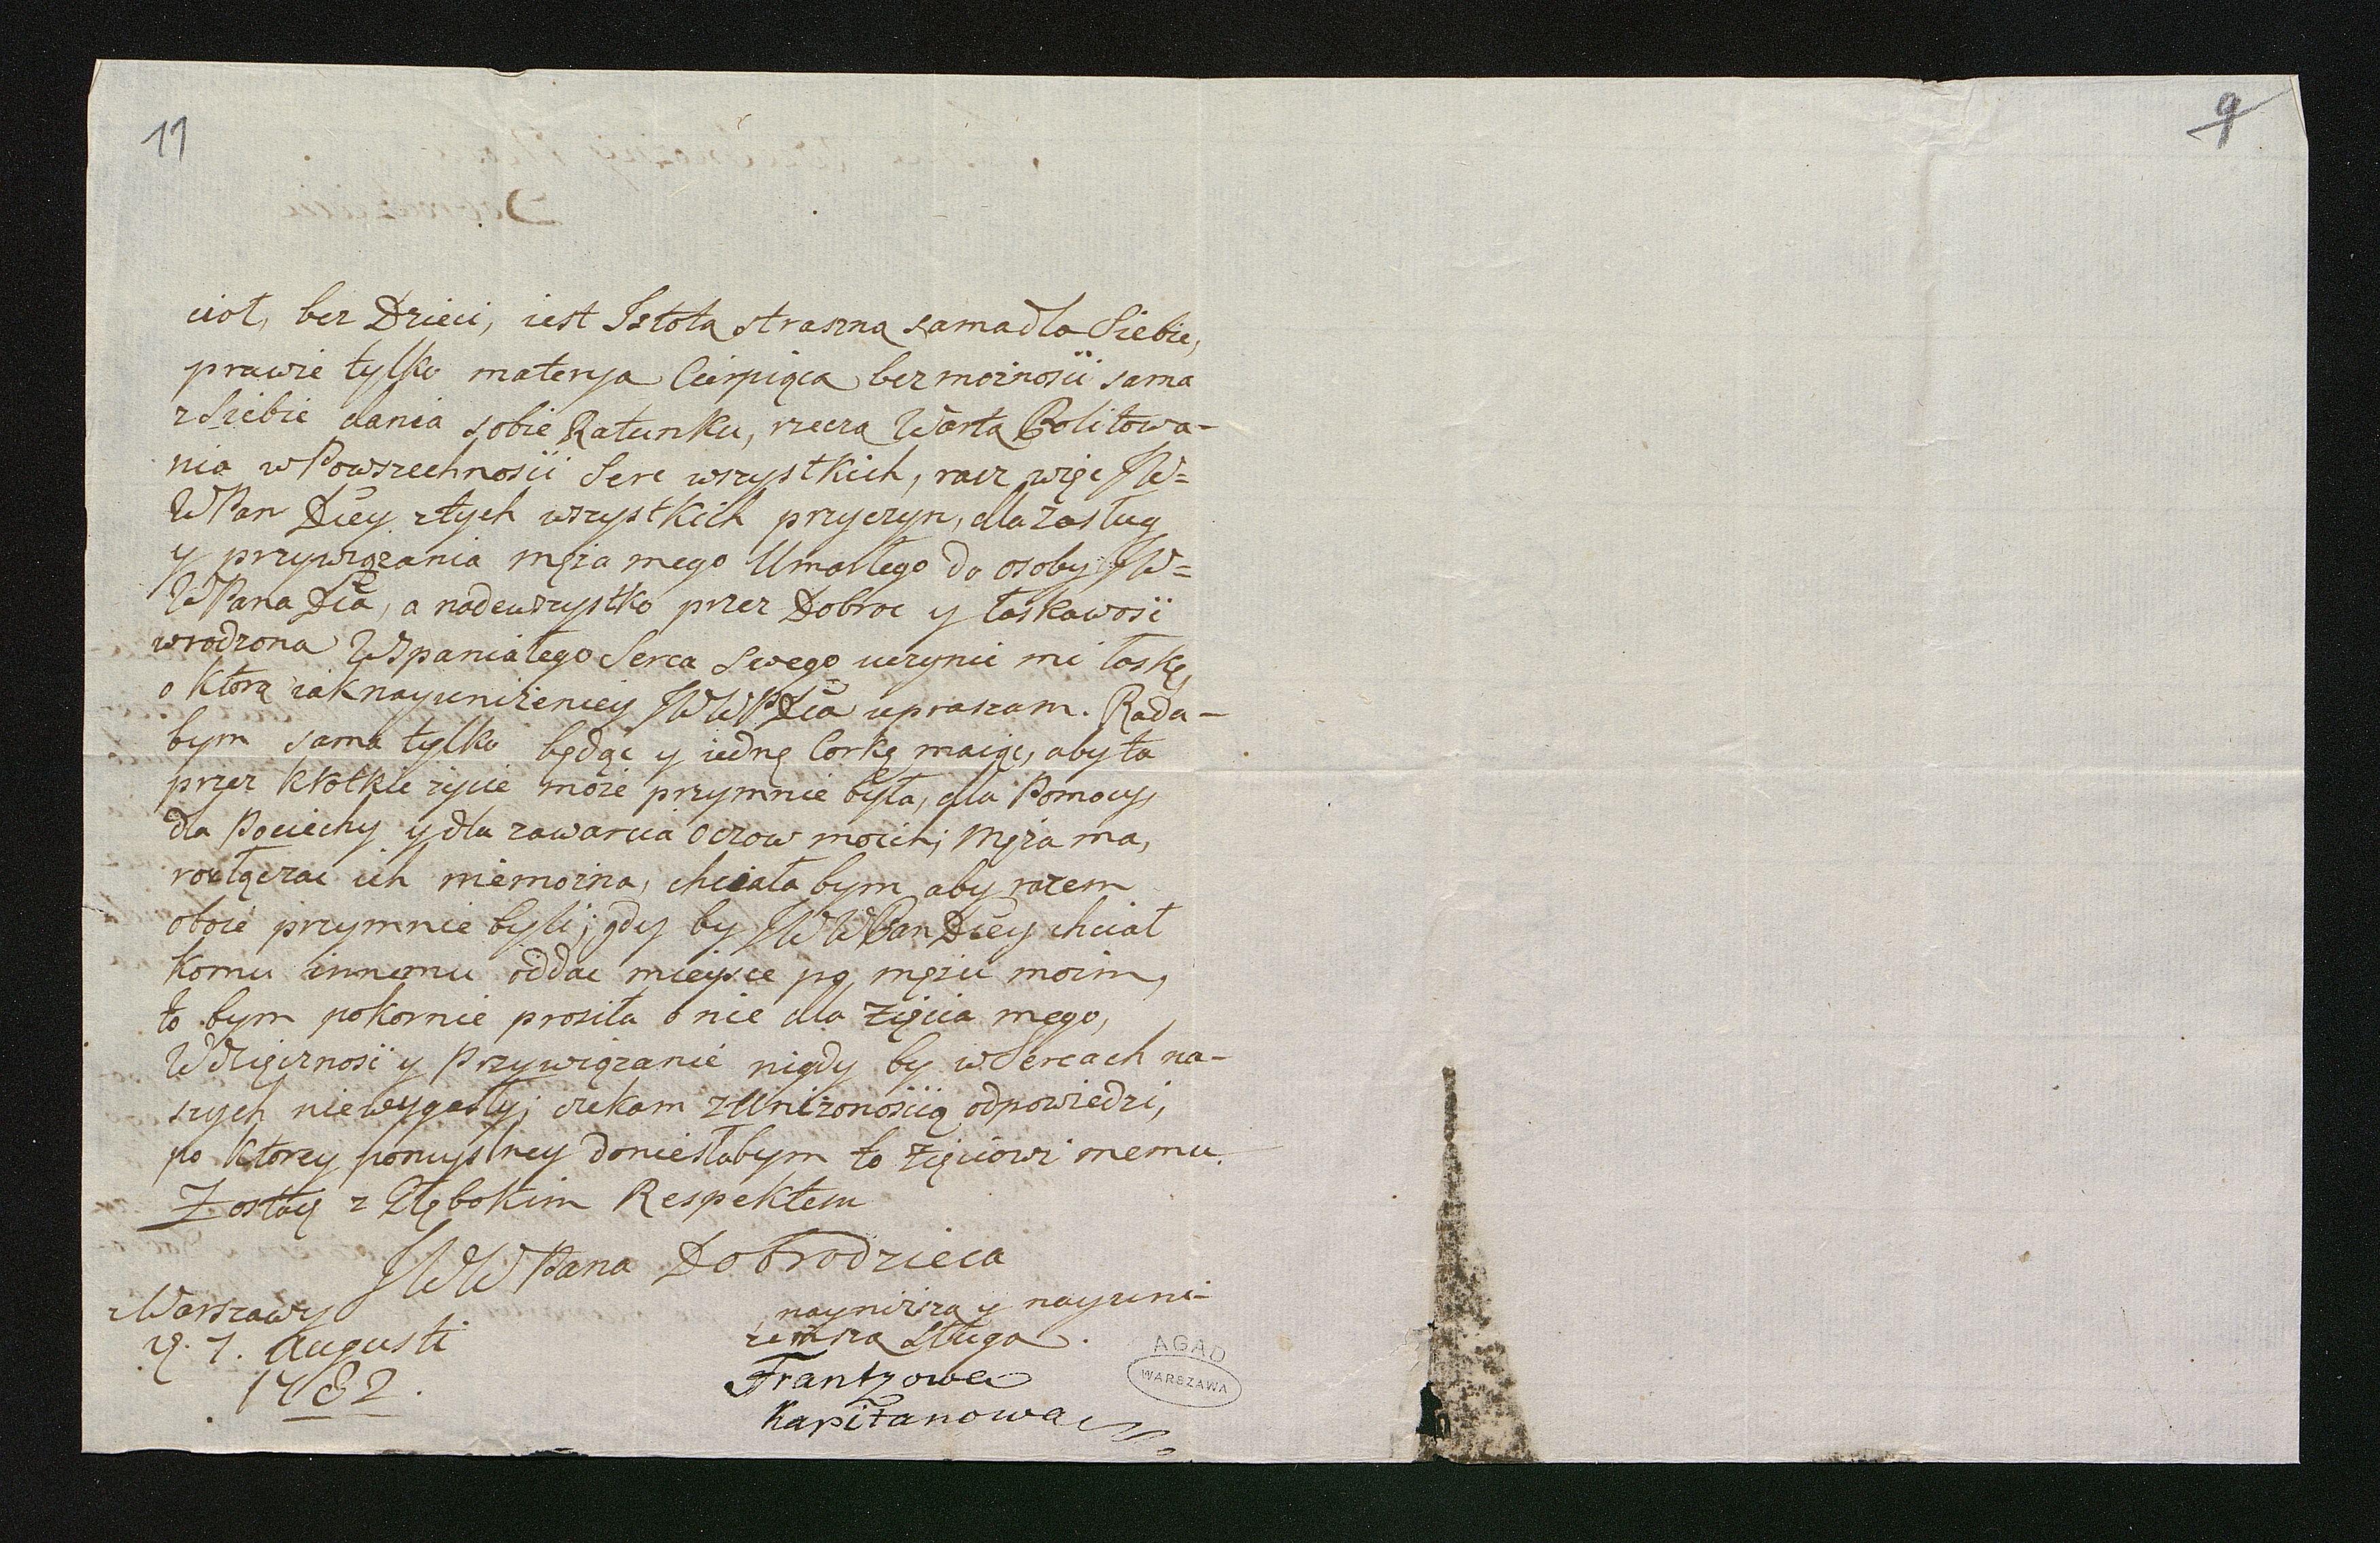 11
9
ciol, bez Dzieci, iest Istota straszna sama dla Siebie,
prawie tylko materya Cierpiąca bez możnosci sama
z Siebie dania sobie Ratunku, rzecza Warta Politowa-
nia w Powszechnosci Serc wszystkich, racz więc JW=
WPan Dźiey z tych wszystkich przyczyn, dla zasług
y przywiązania męża mego Umarłego do osoby JW=
WPana Dźia, a nadewszystko przez Dobroc y łaskawosć
wrodzona Wspaniałego Serca Swego uczynic mi łaskę,
o ktorą iak nayunizeniey JWWPDźia upraszam. Rada-
bym sama tylko będąc y iednę Corkę maiąc, aby ta
przez krotkie życie moie przymnie była, dla Pomocy
dla Pociechy y dla zawarcia oczow moich; Męża ma,
rozłączac ich niemożna, chciała bym aby razem
oboie przymnie byli; gdy by JWWPan Dźiey chciał
komu innemu oddac mieysce po mężu moim,
to bym pokornie prosiła o nie dla Zięcia mego,
Wdzięcznosć y Przywiązanie nigdy by w Sercach na-
szych niewygasły; czekam z Unizonoscią odpowiedzi,
po ktorey pomyslney doniesłabym to Zięciowi memu.
Zostaię z Głębokim Respektem
JWWPana Dobrodzieia
z Warszawy
d. 7. Augusti
1782.
naynizsza y nayuni-
zensza Sługa.
Frantzowa
Kapitanowa
AGAD
WARSZAWA